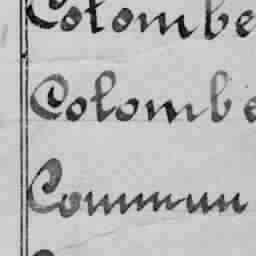 Colombe
Colombe
Commun